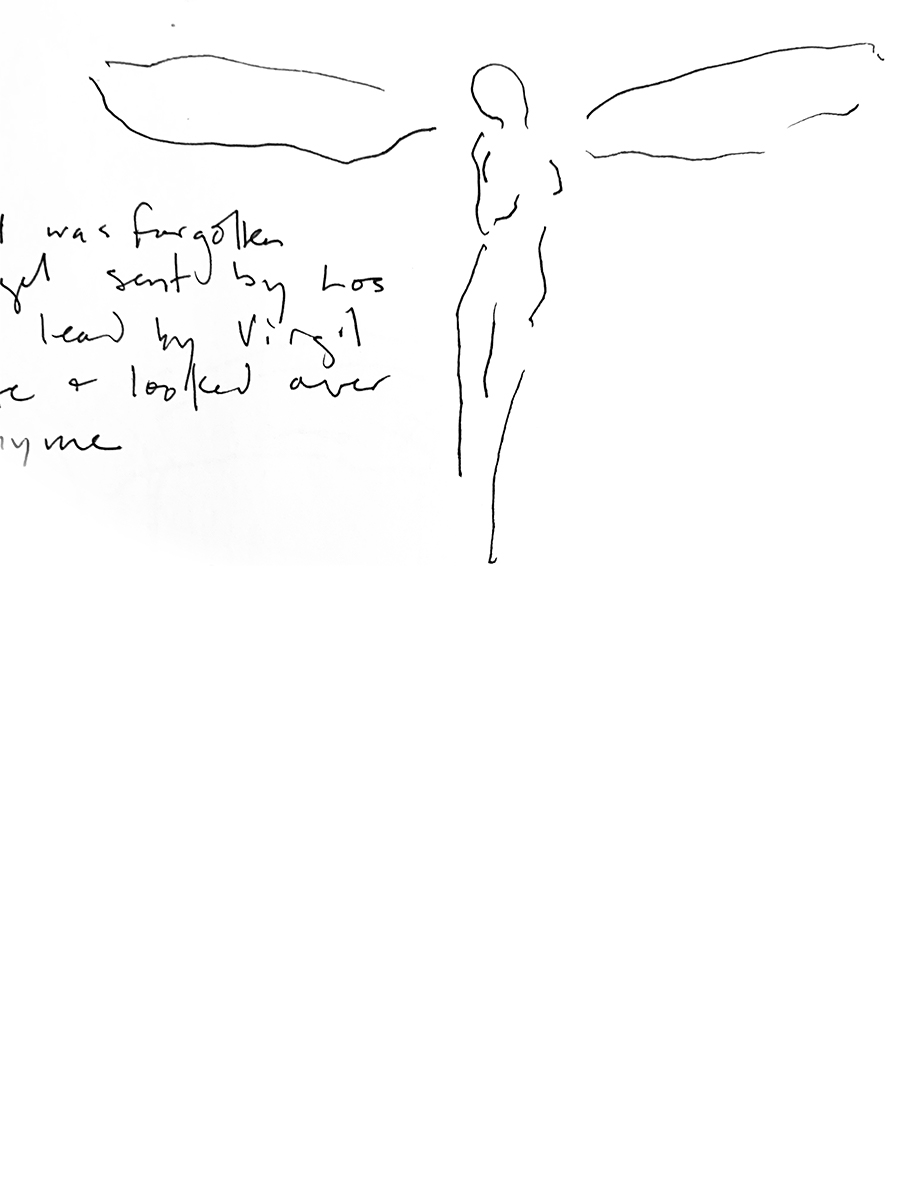 was forgotten
sent by Los
lead by Virgil
+ looked over
me